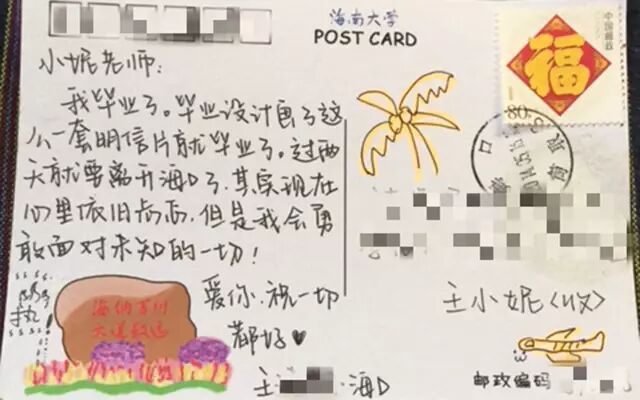 海南大学
POST CARD
小妮老师:
我毕业了。毕业设计画了这
么一套明信片就毕业了。过两
天就要离开海口了,其实现在
心里依旧忐忑,但是我会勇
敢面对未知的一切!
爱你.祝一切
都好♥
海口
海纳百川
大道致远
中国邮政
福
80
海
口
王小妮〈收〉
邮政编码